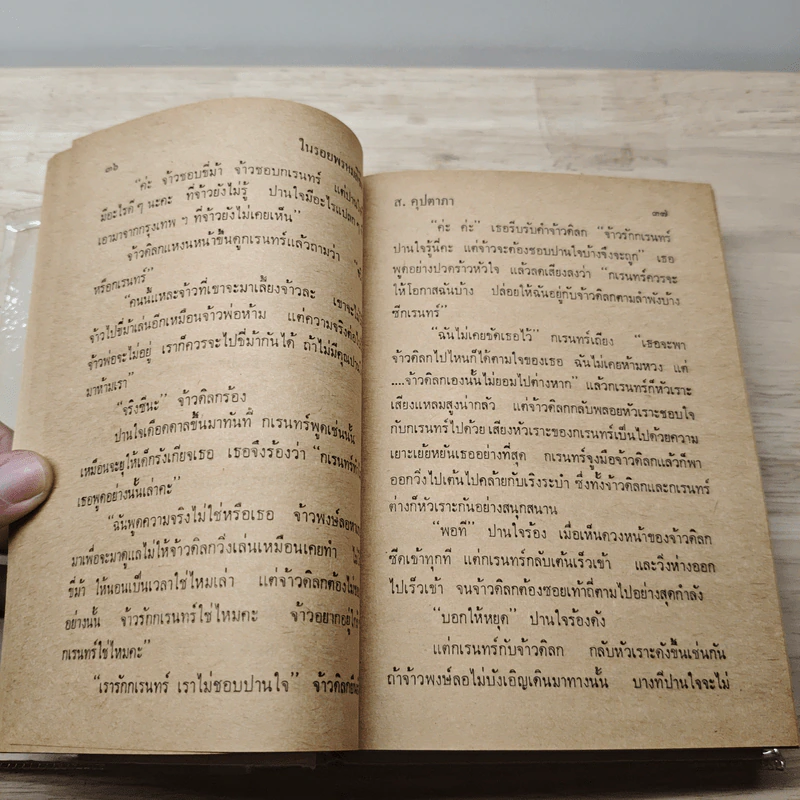 ๓๖
ในรอยพรหม
“ค่ะ จ้าวชอบขี่ม้า จ้าวชอบกเรนทร์ แต่
มีอะไรดี ๆ นะคะ ที่จ้าวยังไม่รู้ ปานใจมีอะไร
เอามาจากกรุงเทพ ฯ ที่จ้าวยังไม่เคยเห็น”
จ้าวดิลกแหงนหน้าขึ้นดูกเรนทร์แล้วถามว่า
หรือกเรนทร์”
“คนนี้แหละจ้าวที่เขาจะมาเลี้ยงจ้าวละ เขาจะ
จ้าวไปขี่ม้าเล่นอีกเหมือนจ้าวพ่อห้าม แต่ความจริง
จ้าวพ่อจะไม่อยู่ เราก็ควรจะไปขี่ม้ากันได้ ถ้าไม่มีคุณ
มาห้ามเรา”
“จริงซีนะ” จ้าวดิลกร้อง
ปานใจเดือดดาลขึ้นมาทันที กเรนทร์พูดเช่นนั้น
เหมือนจะยุให้เด็กรังเกียจเธอ เธอจึงร้องว่า “กเรนทร์
เธอพูดอย่างนั้นเล่าคะ”
“ฉันพูดความจริงไม่ใช่หรือเธอ จ้าวพงษ์ลอ
มาเพื่อจะมาดูแลไม่ให้จ้าวดิลกวิ่งเล่นเหมือนเคยทำ
ขี่ม้า ให้นอนเป็นเวลาใช่ไหมเล่า แต่จ้าวดิลกต้องไม่
อย่างนั้น จ้าวรักกเรนทร์ใช่ไหมคะ จ้าวอยากอยู่
กเรนทร์ใช่ไหมคะ”
“เรารักกเรนทร์ เราไม่ชอบปานใจ” จ้าวดิลก
ส. คุปตาภา
๓๗
“ค่ะ ค่ะ” เธอรีบรับคำจ้าวดิลก “จ้าวรักกเรนทร์
ปานใจรู้นี่คะ แต่จ้าวจะต้องชอบปานใจบ้างจึงจะถูก” เธอ
พูดอย่างปวดร้าวหัวใจ แล้วลดเสียงลงว่า “กเรนทร์ควรจะ
ให้โอกาสฉันบ้าง ปล่อยให้ฉันอยู่กับจ้าวดิลกตามลำพังบ้าง
ซีกเรนทร์”
“ฉันไม่เคยขัดเธอไว้” กเรนทร์เถียง “เธอจะพา
จ้าวดิลกไปไหนก็ได้ตามใจของเธอ ฉันไม่เคยห้ามหวง แต่
....จ้าวดิลกเองนั้นไม่ยอมไปต่างหาก” แล้วกเรนทร์ก็หัวเราะ
เสียงแหลมสูงน่ากลัว แต่จ้าวดิลกกลับพลอยหัวเราะชอบใจ
กับกเรนทร์ไปด้วย เสียงหัวเราะของกเรนทร์เป็นไปด้วยความ
เยาะเย้ยหยันเธออย่างที่สุด กเรนทร์จูงมือจ้าวดิลกแล้วก็พา
ออกวิ่งไปเต้นไปคล้ายกับเริงระบำ ซึ่งทั้งจ้าวดิลกและกเรนทร์
ต่างก็หัวเราะกันอย่างสนุกสนาน
“พอที” ปานใจร้อง เมื่อเห็นดวงหน้าของจ้าวดิลก
ซีดเข้าทุกที แต่กเรนทร์กลับเต้นเร็วเข้า และวิ่งห่างออก
ไปเร็วเข้า จนจ้าวดิลกต้องซอยเท้าถี่ตามไปอย่างสุดกำลัง
“บอกให้หยุด” ปานใจร้องดัง
แต่กเรนทร์กับจ้าวดิลก กลับหัวเราะดังขึ้นเช่นกัน
ถ้าจ้าวพงษ์ลอไม่บังเอิญเดินมาทางนั้น บางทีปานใจจะไม่